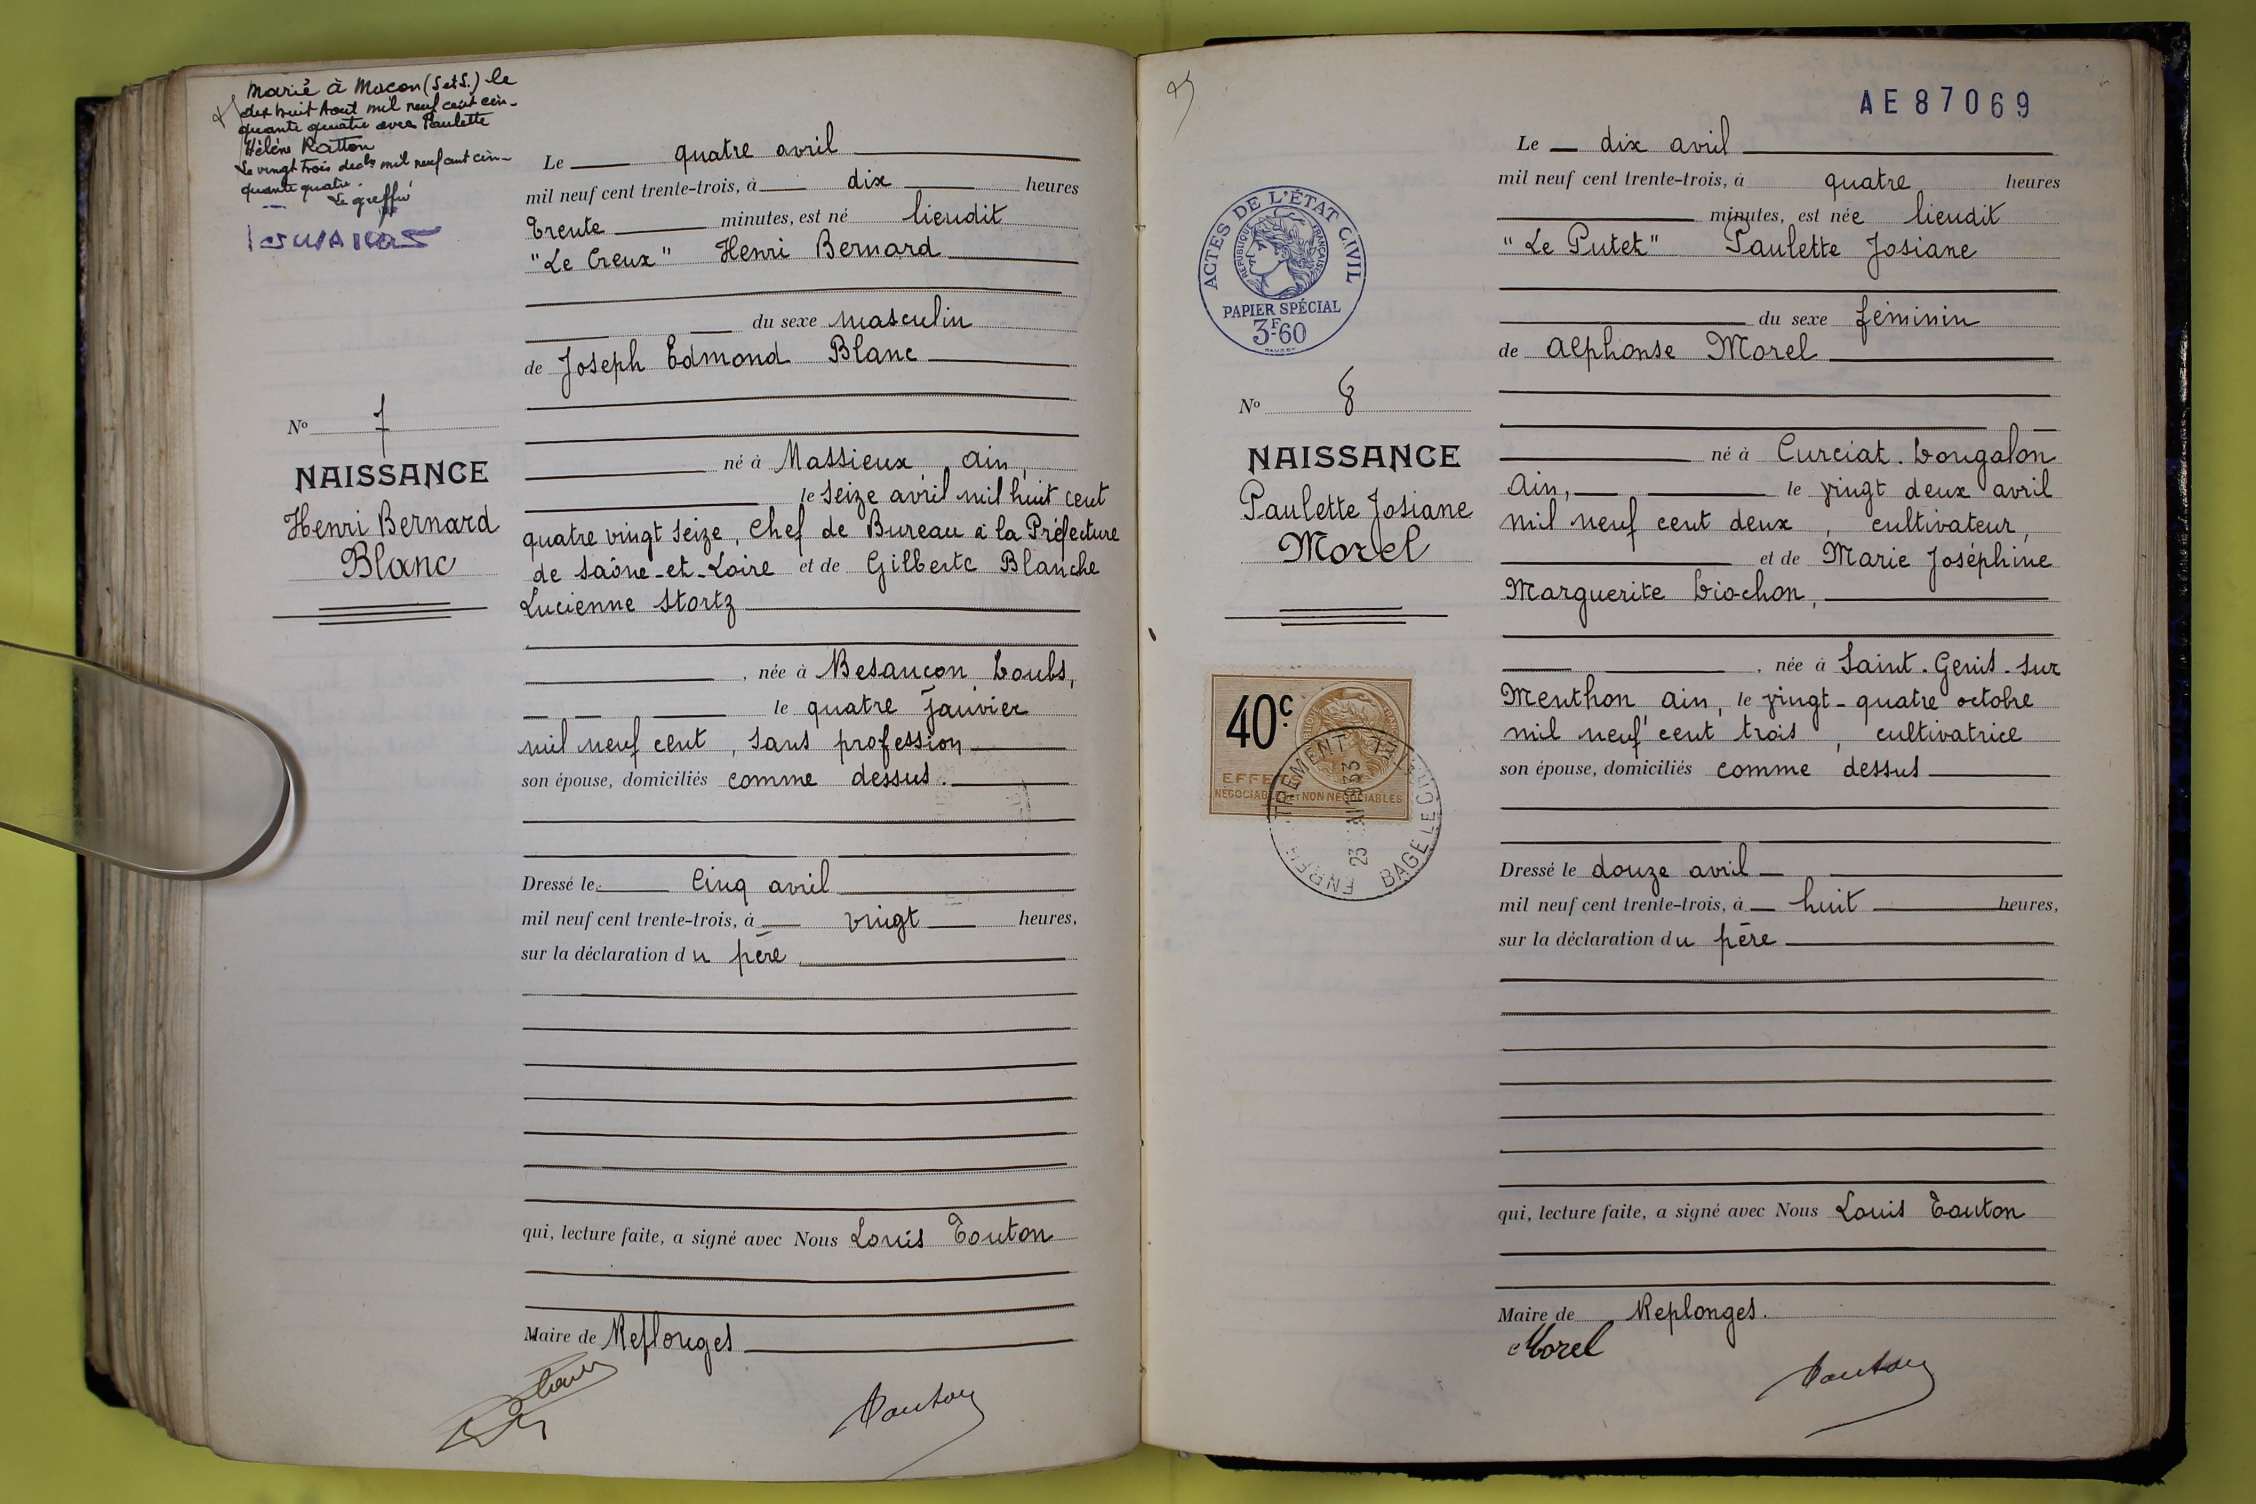 Marié à Macon (S et L.) le
dix huit Aout mil neuf cent cin-
quante quatre avec Paulette
Hélène Ratton
Le vingt trois decbe mil neuf cent cin-
quante quatre.
Le greffier
Le quatre avril
mil neuf cent trente-trois, à dix heures
Trente minutes, est né lieudit
"Le Creux" Henri Bernard
du sexe masculin
de Joseph Edmond Blanc
né à Massieux, Ain,
le seize avril mil huit cent
quatre vingt seize, Chef de Bureau à la Préfecture
de Saône-et-Loire et de Gilberte Blanche
Lucienne Stortz
, née à Besançon Doubs,
le quatre Janvier
mil neuf cent, sans profession
son épouse, domiciliés comme dessus.
Dressé le Cinq avril
mil neuf cent trente-trois, à vingt heures,
sur la déclaration du père
qui, lecture faite, a signé avec Nous Louis Touton
Maire de Replonges
Touton
No 7
NAISSANCE
Henri Bernard
Blanc
AE87069
Le dix avril
mil neuf cent trente-trois, à quatre heures
minutes, est née lieudit
"Le Putet" Paulette Josiane
du sexe féminin
de Alphonse Morel
né à Curciat. Dongalon
Ain, le vingt deux avril
mil neuf cent deux, cultivateur,
et de Marie Joséphine
Marguerite Diochon,
, née à Saint-Genis-sur
Menthon Ain, le vingt-quatre octobre
mil neuf cent trois, cultivatrice
son épouse, domiciliés comme dessus
Dressé le douze avril
mil neuf cent trente-trois, à huit heures,
sur la déclaration du père
qui, lecture faite, a signé avec Nous Louis Touton
Maire de Replonges.
Morel
Touton
ACTES DE L'ÉTAT CIVIL
RÉPUBLIQUE FRANÇAISE
PAPIER SPÉCIAL
3F60
No 8
NAISSANCE
Paulette Josiane
Morel
40c
EFFETS
NÉGOCIABLES ET NON NÉGOCIABLES
BAGE LE